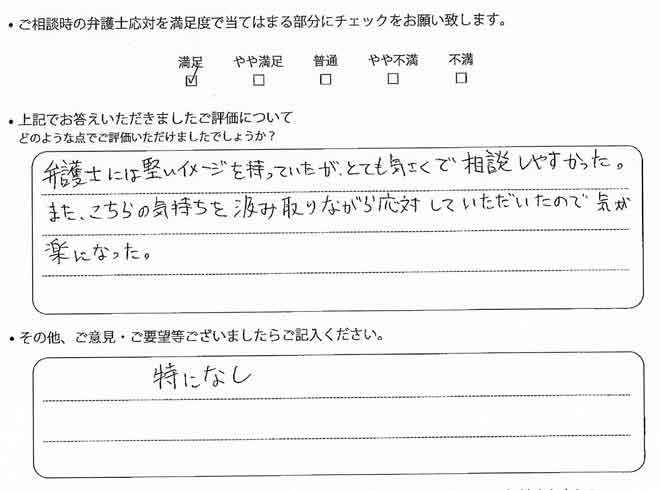 ・ご相談時の弁護士応対を満足度で当てはまる部分にチェックをお願い致します。
満足 やや満足 普通 やや不満 不満
☑ □ □ □ □
・上記でお答えいただきましたご評価について
どのような点でご評価いただけましたでしょうか?
弁護士には堅いイメージを持っていたが、とても気さくで相談しやすかった。
また、こちらの気持ちを汲み取りながら応対していただいたので気が
楽になった。
・その他、ご意見・ご要望等ございましたらご記入ください。
特になし